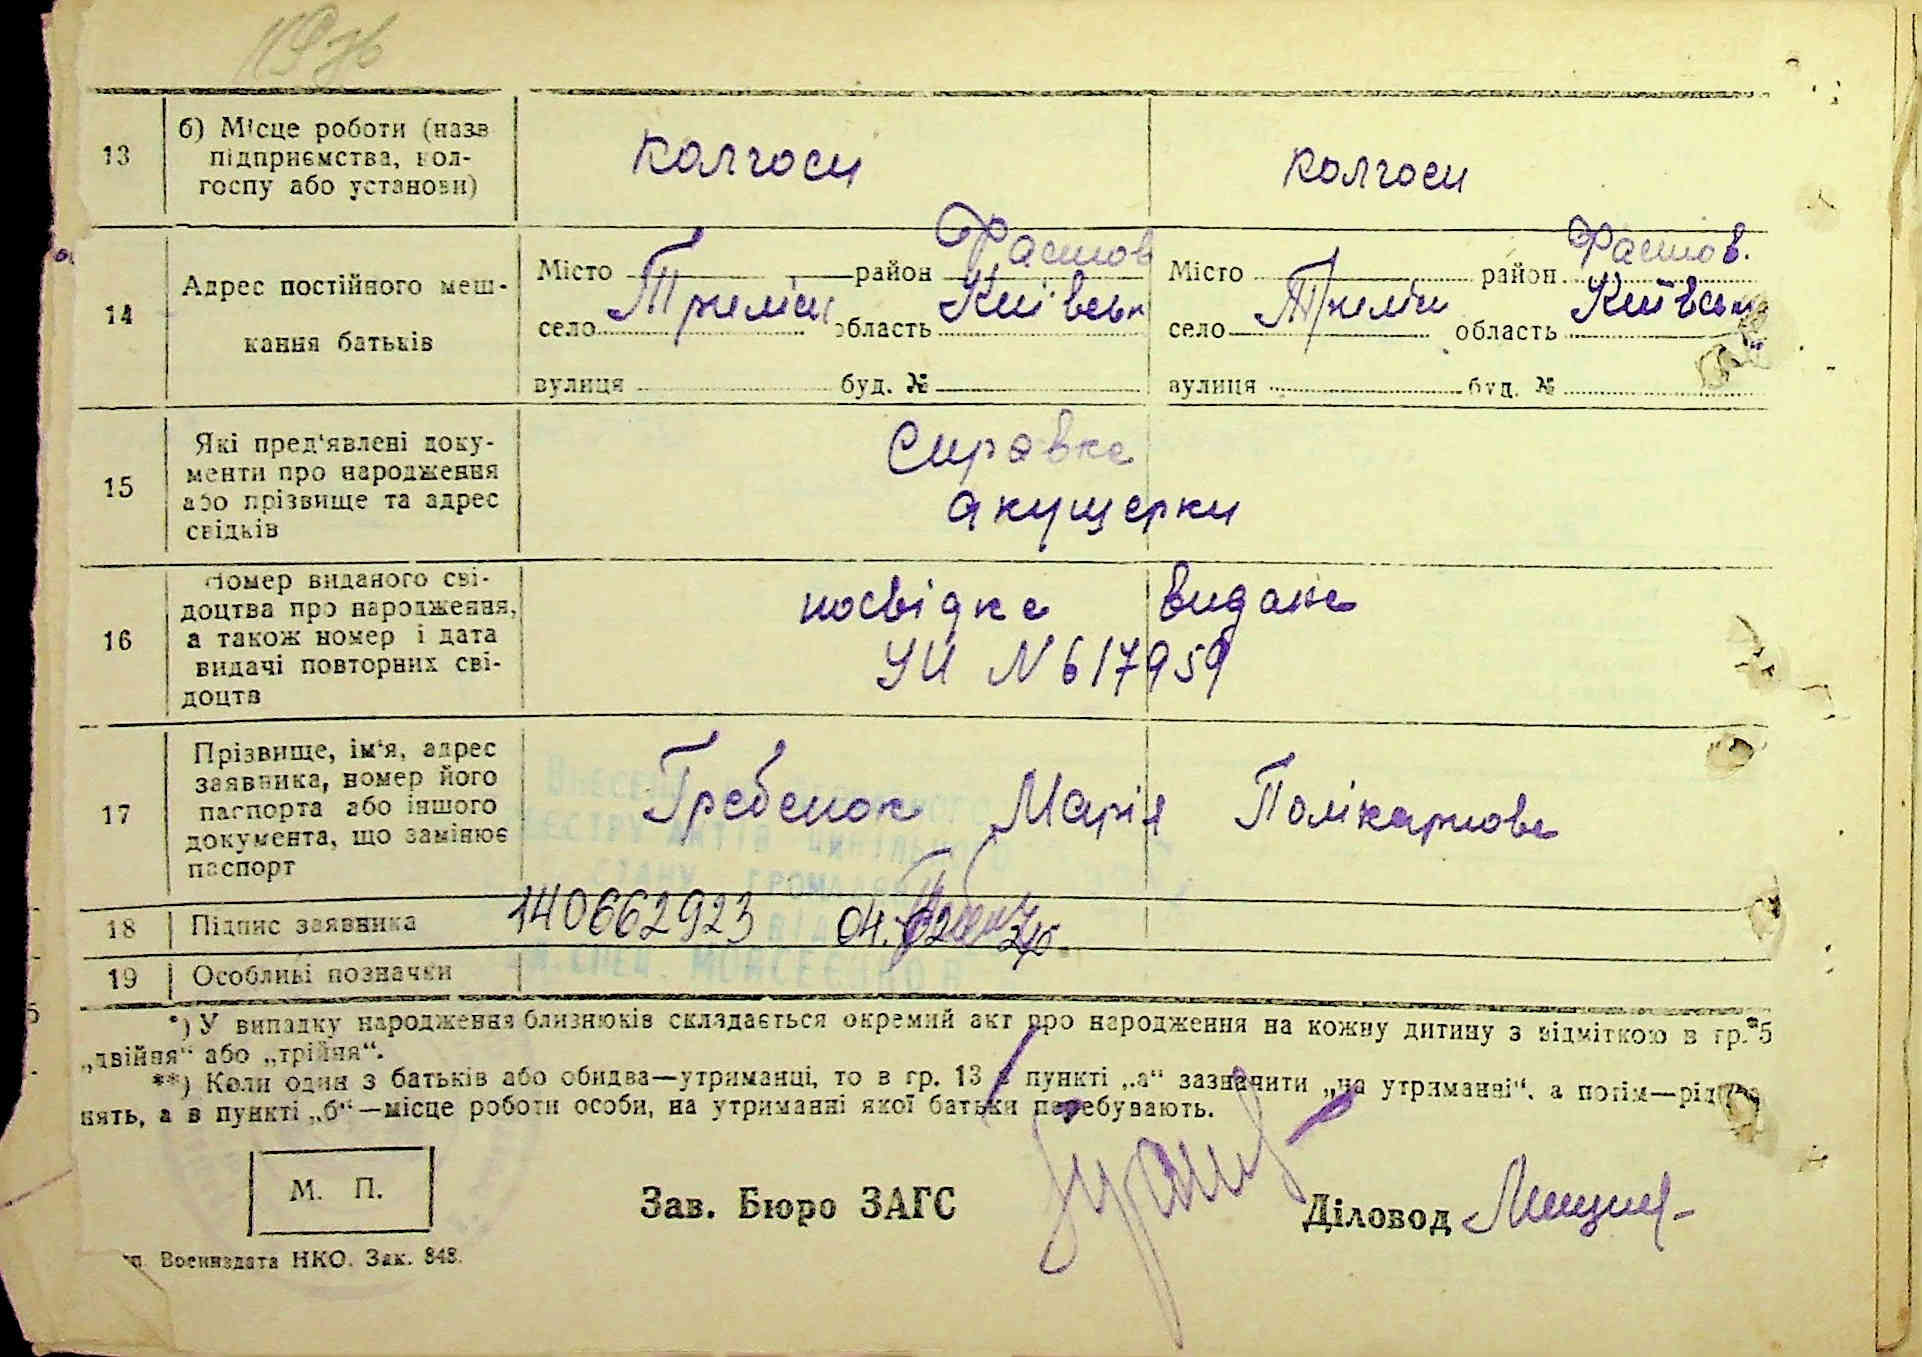 13
б) Місце роботи (назв
підприємства, кол-
госпу або установи)
колгосп
колгосп
14
Адрес постійного меш-
кання батьків
Місто район Фастов
село Триліси область Київськ
вулиця буд. №
Місто район Фастов.
село Триліси область Київськ
вулиця буд. №
15
Які пред‘явлені доку-
менти про народження
або прізвище та адрес
свідків
Справка
акушерки
16
Номер виданого сві-
доцтва про народження,
а також номер і дата
видачі повторних сві-
доцтв
посвідка видана
УИ N 617959
17
Прізвище, ім‘я, адрес
заявника, номер його
паспорта або іншого
документа, що замінює
паспорт
Гребенюк Марія Полікарповна
ВНЕСЕНО ДО ДЕРЖАВНОГО
РЕЄСТРУ АКТІВ ЦИВІЛЬНОГО
СТАНУ ГРОМАДЯН
18
Підпис заявника
140662923
СПЕЦ. МОЙСЕЄНКО
19
Особливі позначки
*) У випадку народження близнюків складається окремий акт про народження на кожну дитину з відміткою в гр. 5
„двійня“ або „трійня“.
**) Коли один з батьків або обидва—утриманці, то в гр. 13 в пункті „а“ зазначити „на утриманні“, а потім—рід
нять, а в пункті „б“—місце роботи особи, на утриманні якої батьки перебувають.
М. П.
Зав. Бюро ЗАГС
Діловод
Воениздата НКО. Зак. 848.